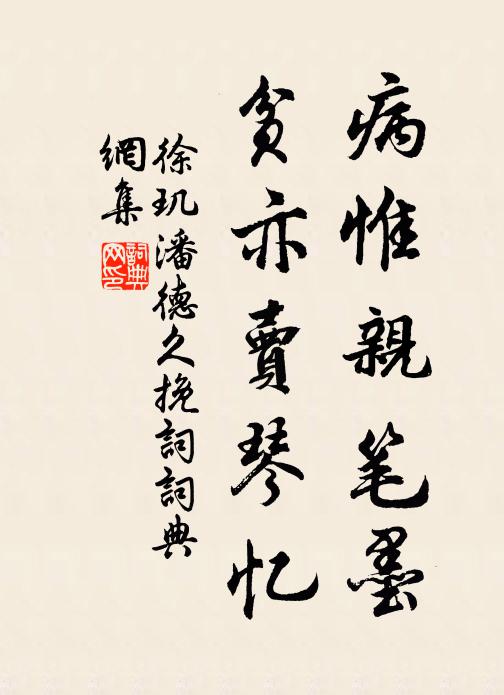 病惟親笔墨
貧亦賣琴忆
徐玑潘德久挽詞詞典
網集
詞典网印